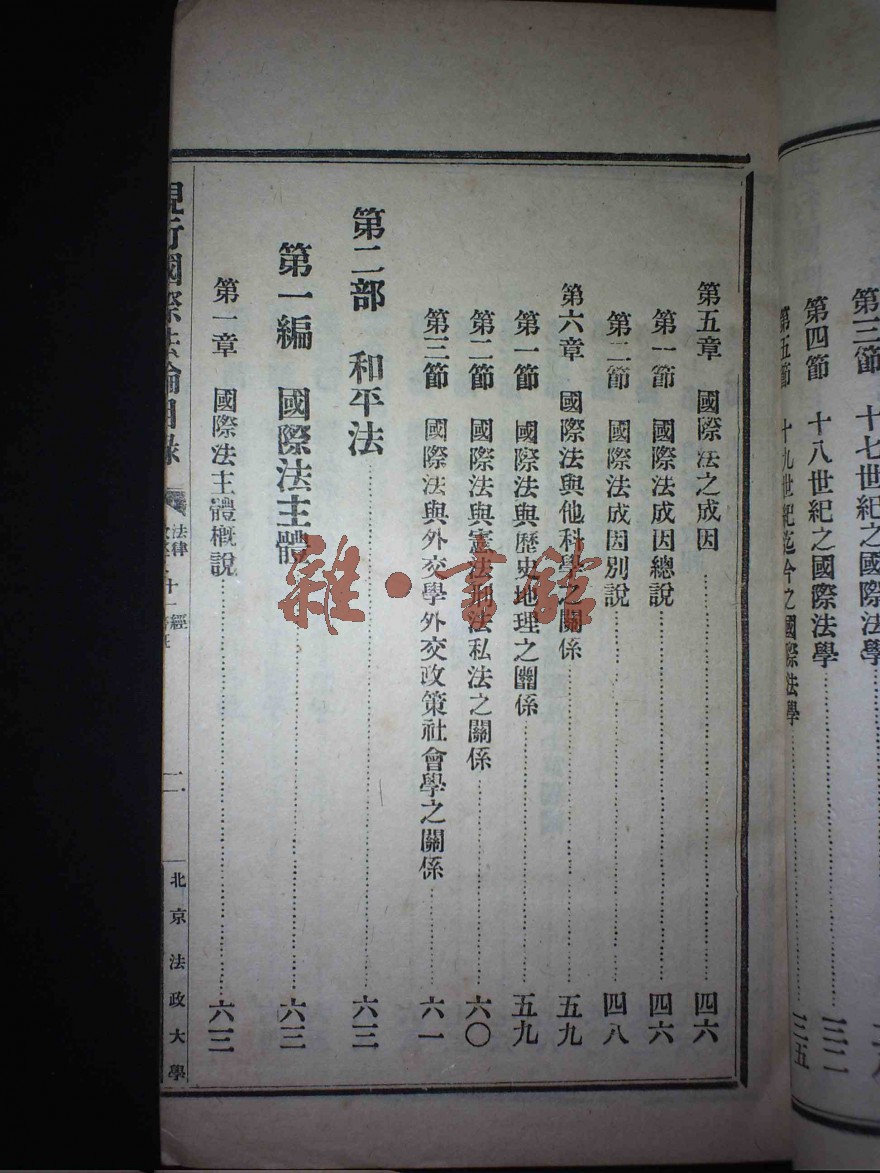 第三節 十七世紀之國際法學
第四節 十八世紀之國際法學 三二
第五節 十九世紀迄今之國際法學 三五
第五章 國際法之成因 四六
第一節 國際法成因總說 四六
第二節 國際法成因別說 四八
第六章 國際法與他科學之關係 五九
第一節 國際法與歷史地理之關係 五九
第二節 國際法與憲法刑法私法之關係 六〇
第三節 國際法與外交學外交政策社會學之關係 六一
第二部 和平法 六三
第一編 國際法主體 六三
第一章 國際法主體概說 六三
現行國際法論目錄
法律
十一 經
二
北京法政大學
雜·書館